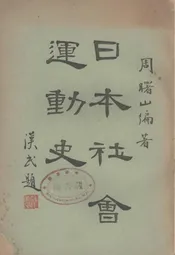 周曙山編著
日本社會
運動史
漢民題